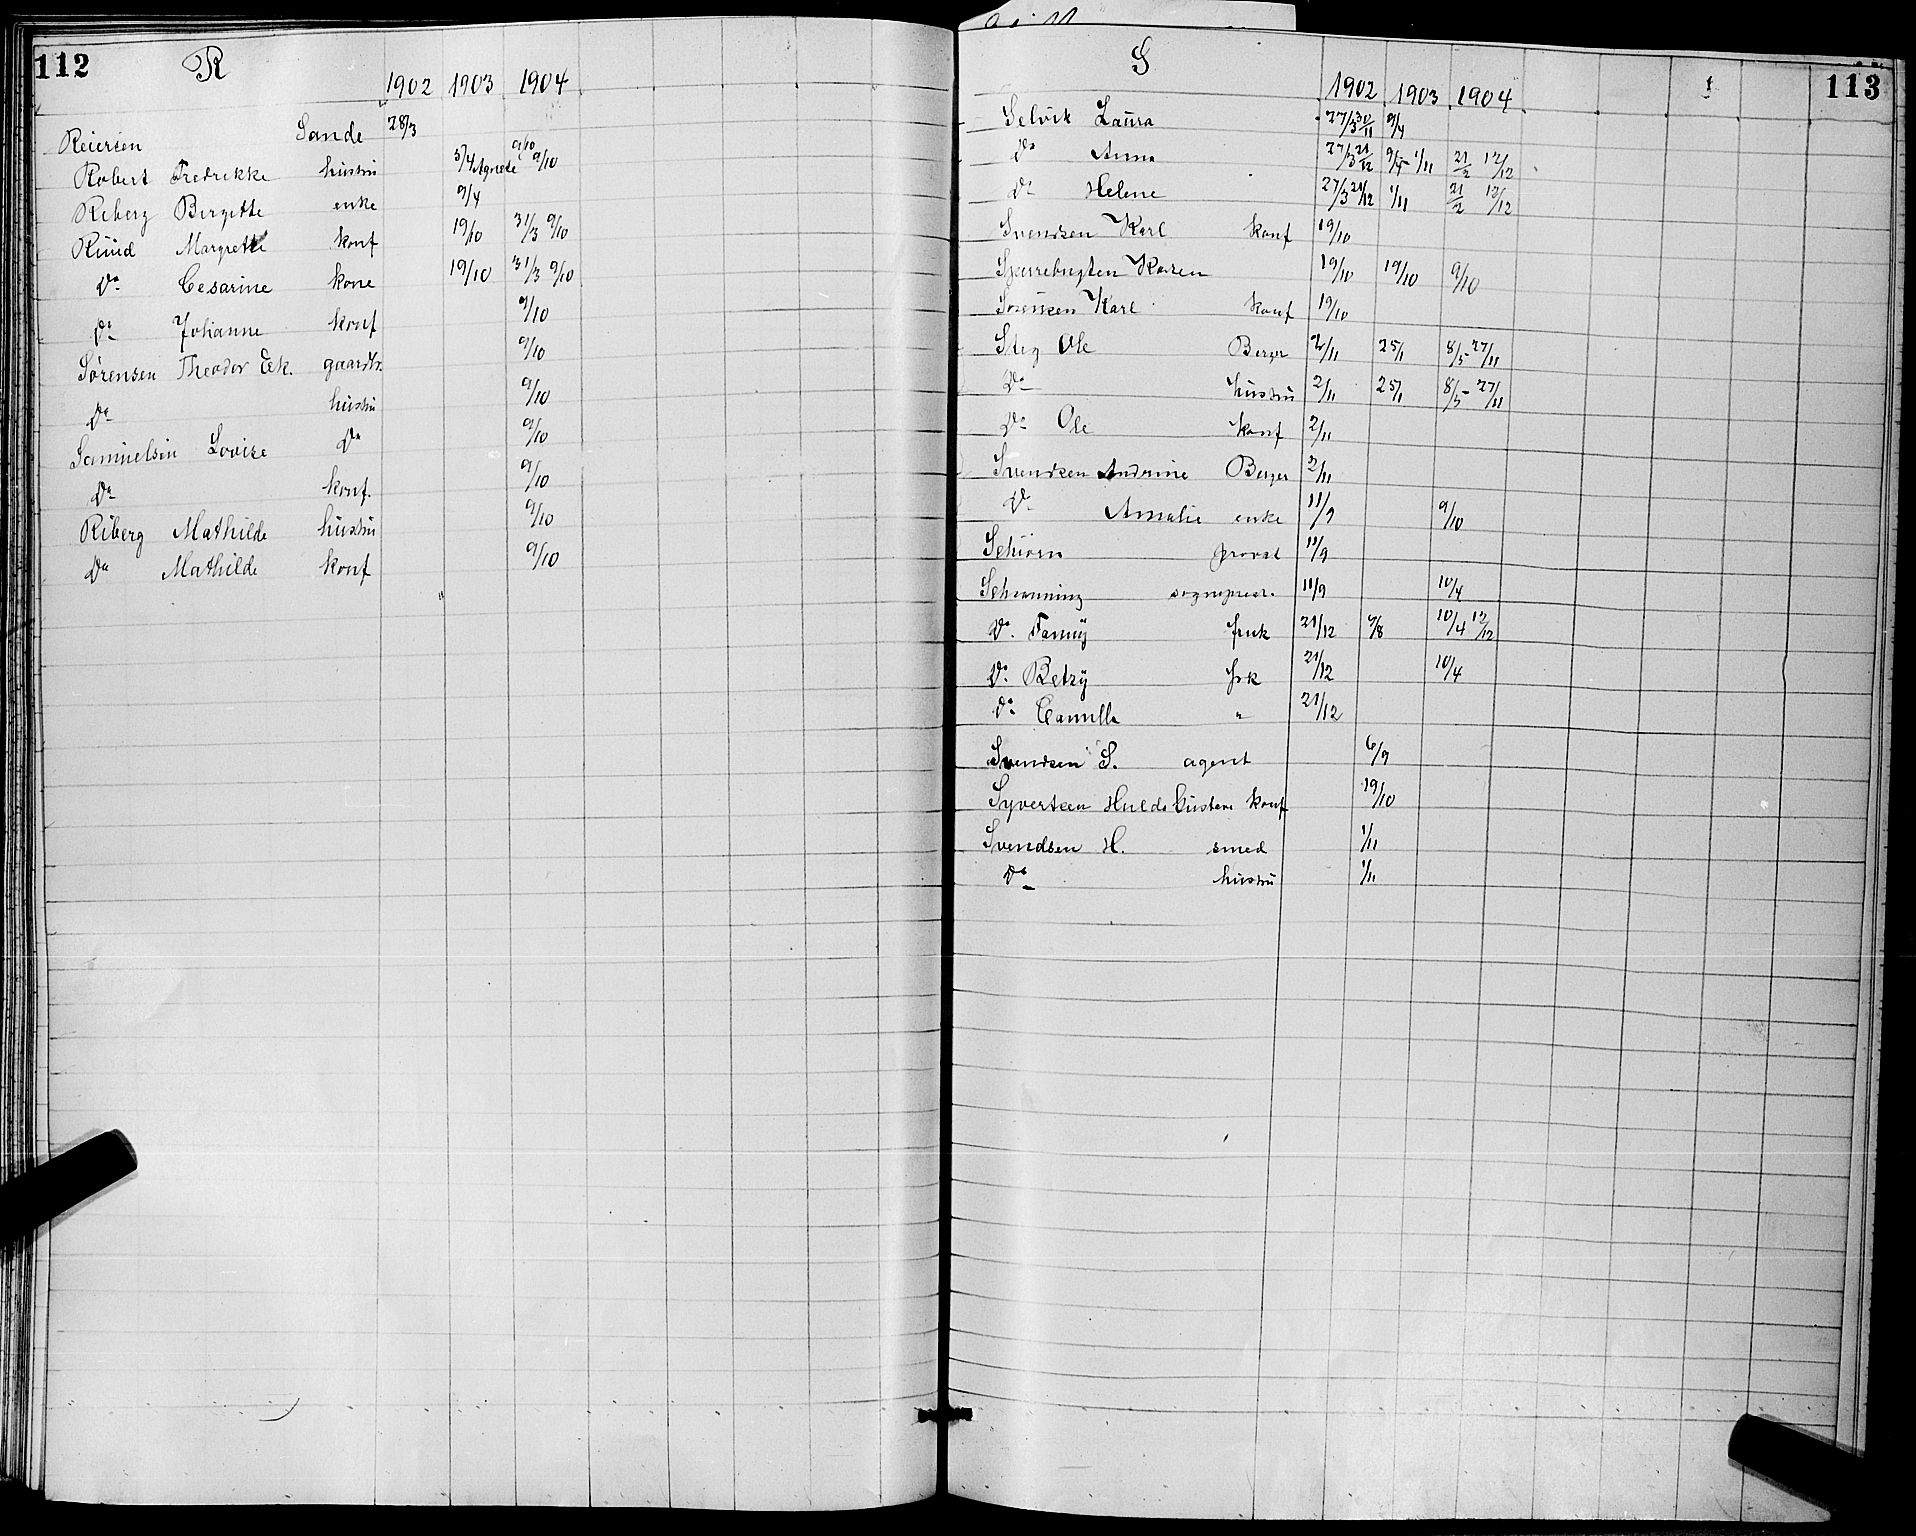 112 R
1902 1903 1904
Reiersen Sande 28/3
Robert Fredrikke hustru 5/4 Agnete 9/10 9/10
Riberg Birgitte enke 9/4
Ruud Margrethe konf 19/10 31/3 9/10
Do Cesarine kone 19/10 31/3 9/10
Do Johanne konf 9/10
Sørensen Theodor Eek. gaardbr. 9/10
Do hustru 9/10
Samuelsen Lovise Do 9/10
Do konf. 9/10
Riberg Mathilde hustru 9/10
Do Mathilde konf 9/10
S 113
1902 1903 1904
Selvik Laura 27/3 30/11 9/4
Do Anna 27/3 21/12 9/4 - 1/11 21/2 12/12
Do Helene 27/3 21/12 1/11 21/2 12/12
Svendsen Karl konf 19/10
Karen 19/10 19/10 9/10
Sørensen Karl konf 19/10
Steg Ole Berger 2/11 25/1 8/5 - 27/11
Do hustru 2/11 25/1 8/5 - 27/11
Do Ole konf 2/11
Svendsen Andrine Berger 2/11
Do Amalie enke 11/9 9/10
Schiørn provst 11/9
Schrønning sogneprest. 11/9 10/4
Do. Fanny fruk 21/12 9/8 10/4 12/12
Do. Betzy frk 21/12 10/4
Do. Camilla " 21/12
Svendsen S. agent 6/9
Syvertsen Hulda Gustava konf 19/10
Svendsen H. smed 1/11
Do hustru 1/11